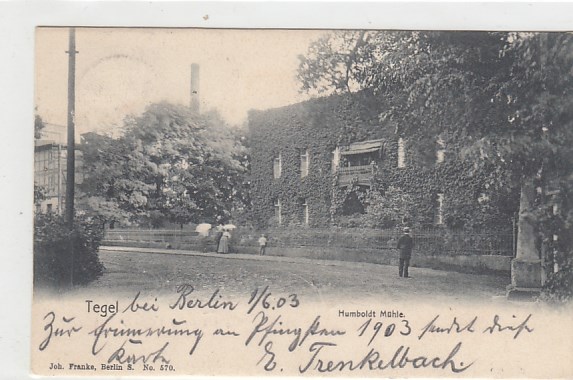 Tegel bei Berlin 1/6.03
Humboldt Mühle.
Zur Erinnerung an Pfingsten 1903 sendet diese
Karte E. Trenkelbach.
Joh. Franke, Berlin S. No. 570.